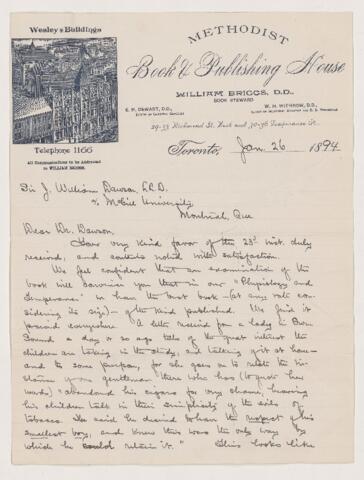 Wesley Buildings
Telephone 1166
All Communications to be Addressed
to WILLIAM BRIGGS.
METHODIST
Book & Publishing House
WILLIAM BRIGGS, D.D.,
BOOK STEWARD
E. H. DEWART, D.D.,
W. H. WITHROW, D.D.,
29-33 Richmond St. West and 30-36 Temperance St.
Toronto, Jan. 26 1894
Sir J. William Dawson, LL.D.
% McGill University,
Montreal, Que
Dear Dr. Dawson.
Your very kind favor of the 23d inst. duly
received, and contents noted with satisfaction.
We feel confident that an examination of the
book will convince you that in our "Physiology and
Temperance" we have the best book - (at any rate con-
sidering its size) - of the kind published. We find it
everywhere. A letter received from a lady in Owen
Sound a day or so ago tells of the great interest the
children are taking in the study, and talking of it at home -
and to some purpose, for she goes on to relate the in-
stance of a gentleman there who has (to quote her
words) "abandoned his cigars for very shame, hearing
his children talk in their simplicity of the evils of
tobacco. He said he desired to have the respect of his
smallest boy, and knew this was the only way by
which he could retain it." This looks like